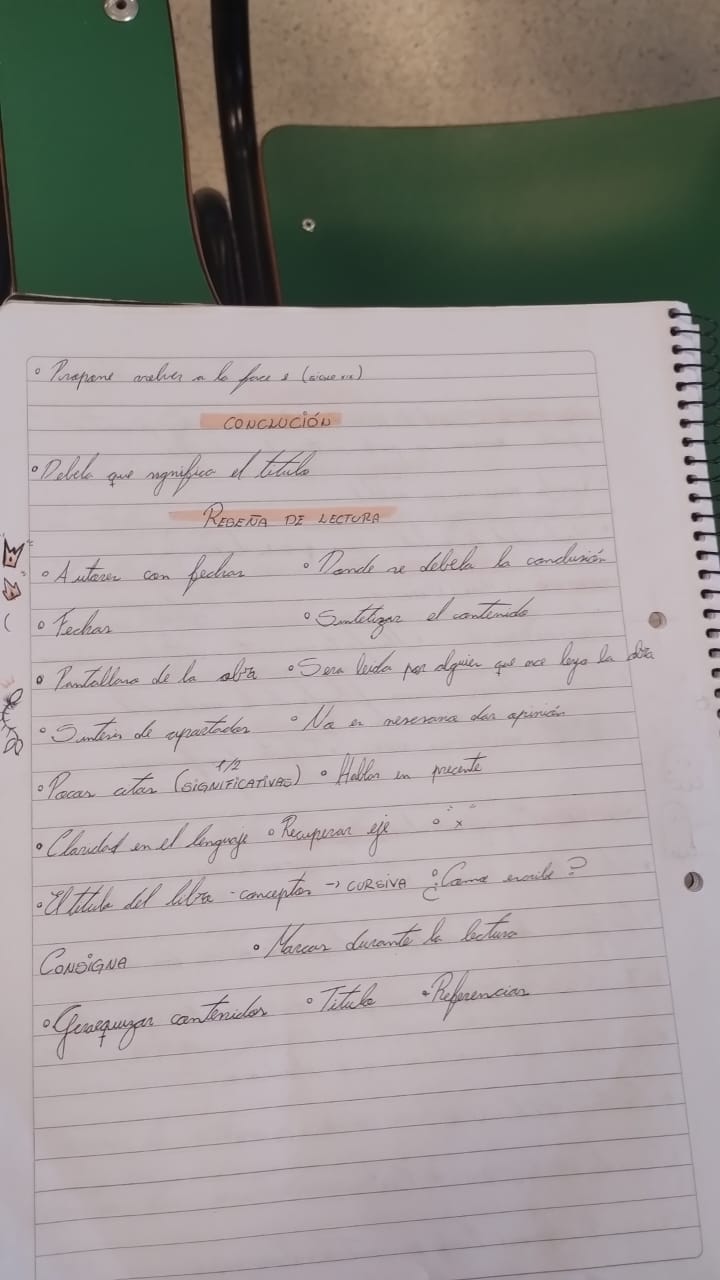 ° Propone volver a la face 1 (SIGLO XIX)
CONCLUCIÓN
° Debela que significa el titulo
RESEÑA DE LECTURA
° Autores con fechas ° Donde se debela la conclusión
° Fechas ° Sintetizar el contenido
° Pantallaso de la obra ° Sera leida por alguien que ace leyo la obra
° Sintesis de apartados ° No es nesesaria dar opinión
° Pocas citas (SIGNIFICATIVAS) 1/2 ° Hablar en presente
° Claridad en el lenguaje ° Recuperar eje ° " x "
° El titulo del libro - conceptos → CURSIVA ° ¿Como escribe?
CONSIGNA ° Marcas durante la lectura
° Gerarquizar contenidos ° Titulo ° Referencias